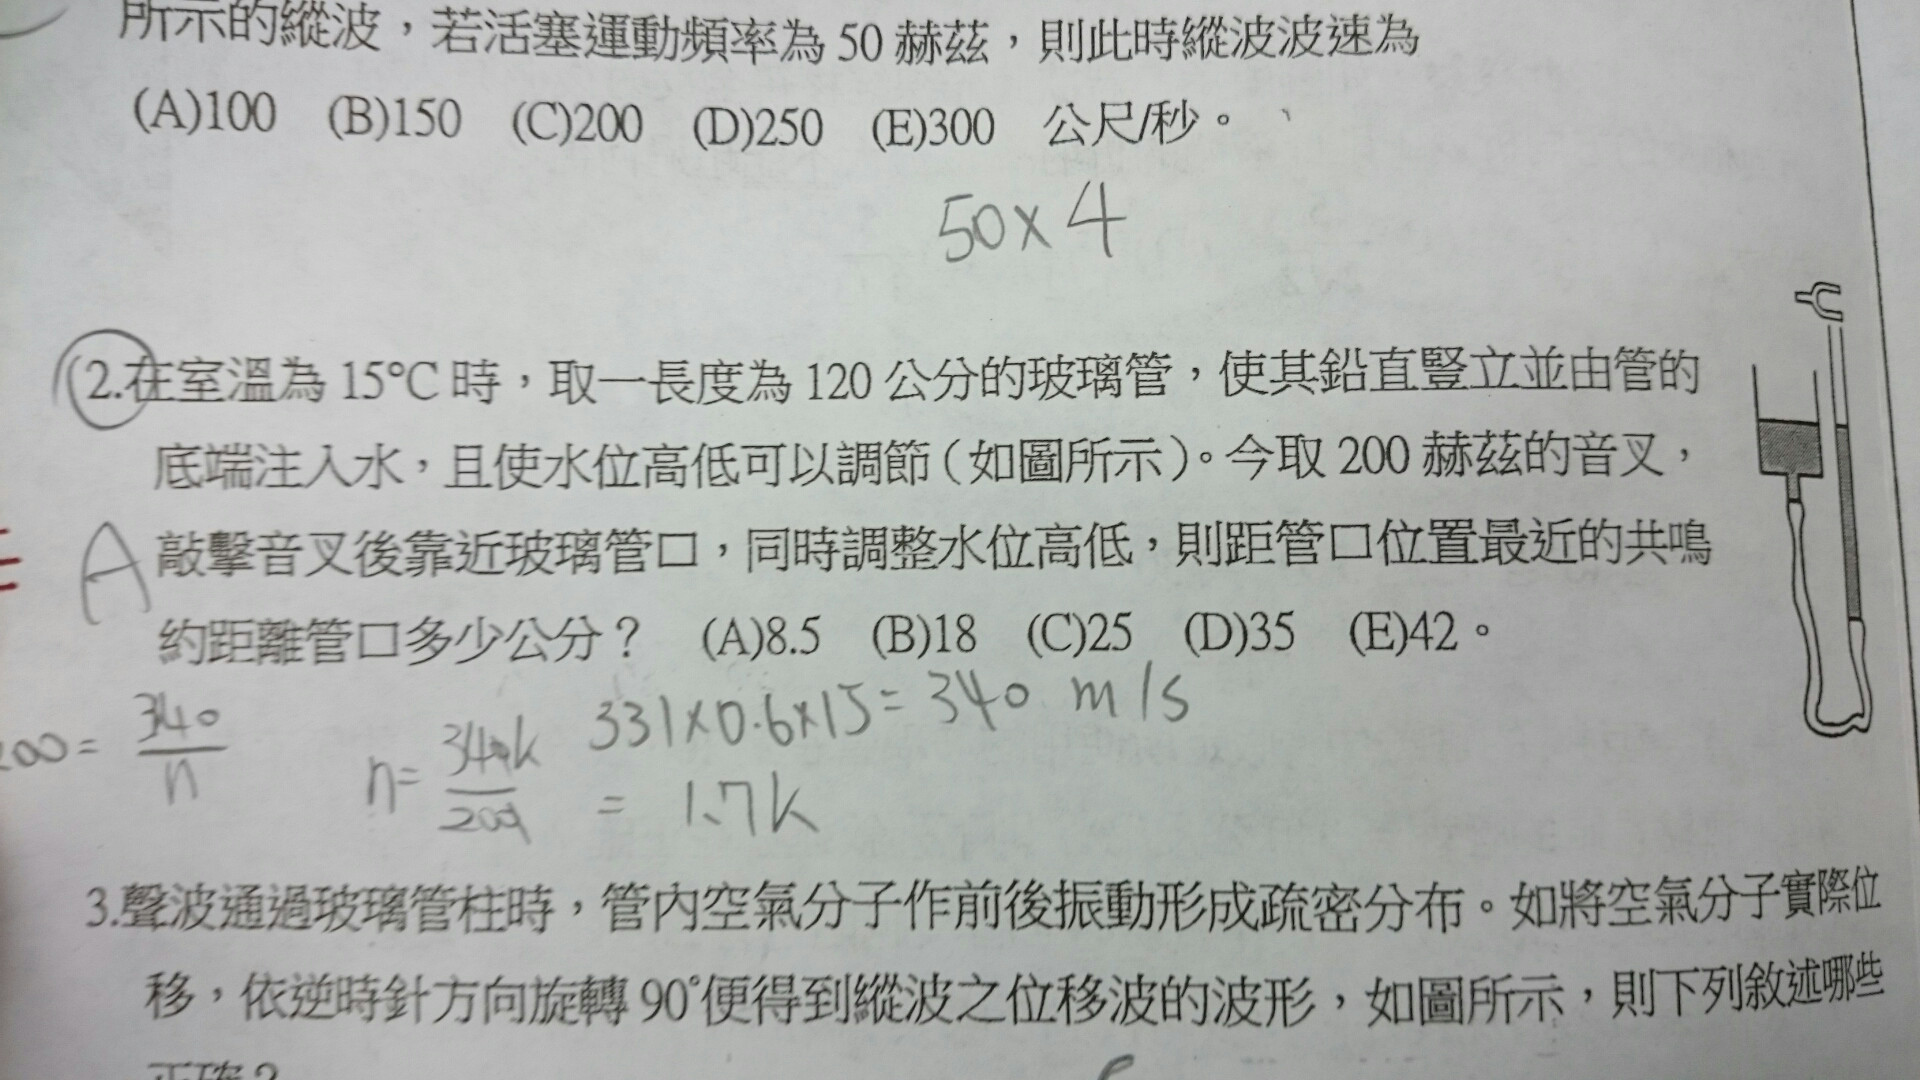 所示的縱波，若活塞運動頻率為 50 赫茲，則此時縱波波速為
(A)100 (B)150 (C)200 (D)250 (E)300 公尺/秒。
50×4
2.在室溫為 15°C 時，取一長度為 120 公分的玻璃管，使其鉛直豎立並由管的
底端注入水，且使水位高低可以調節（如圖所示）。今取 200 赫茲的音叉，
A 敲擊音叉後靠近玻璃管口，同時調整水位高低，則距管口位置最近的共鳴
約距離管口多少公分？ (A)8.5 (B)18 (C)25 (D)35 (E)42。
331×0.6×15=340 m/s
200= 340/n n= 340k/200 = 1.7k
3.聲波通過玻璃管柱時，管內空氣分子作前後振動形成疏密分布。如將空氣分子實際位
移，依逆時針方向旋轉 90°便得到縱波之位移波的波形，如圖所示，則下列敘述哪些
正確？